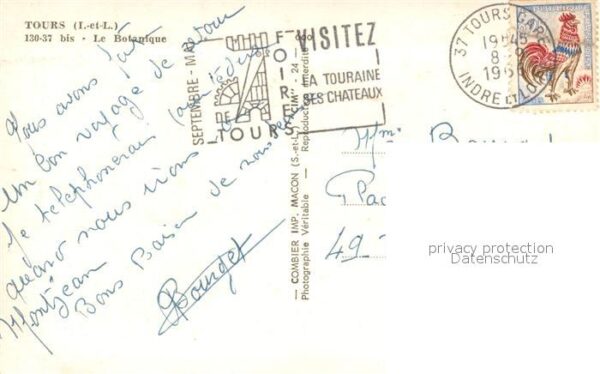 TOURS (I.-et-L.)
130-37 bis - Le Botanique
Nous avons fait
un bon voyage de retour
Je téléphonerais
quand nous irons
Montjean
Bons Baiser de nous
Bourget
SEPTEMBRE - MAI
FOIRES
DE
TOURS
VISITEZ
LA TOURAINE
SES CHATEAUX
37 TOURS GARE
19H45
8
INDRE ET LOIRE
COMBIER IMP. MACON (S.-et-L.)
Photographie Véritable - Reproduction Interdite
Mme
49
privacy protection
Datenschutz